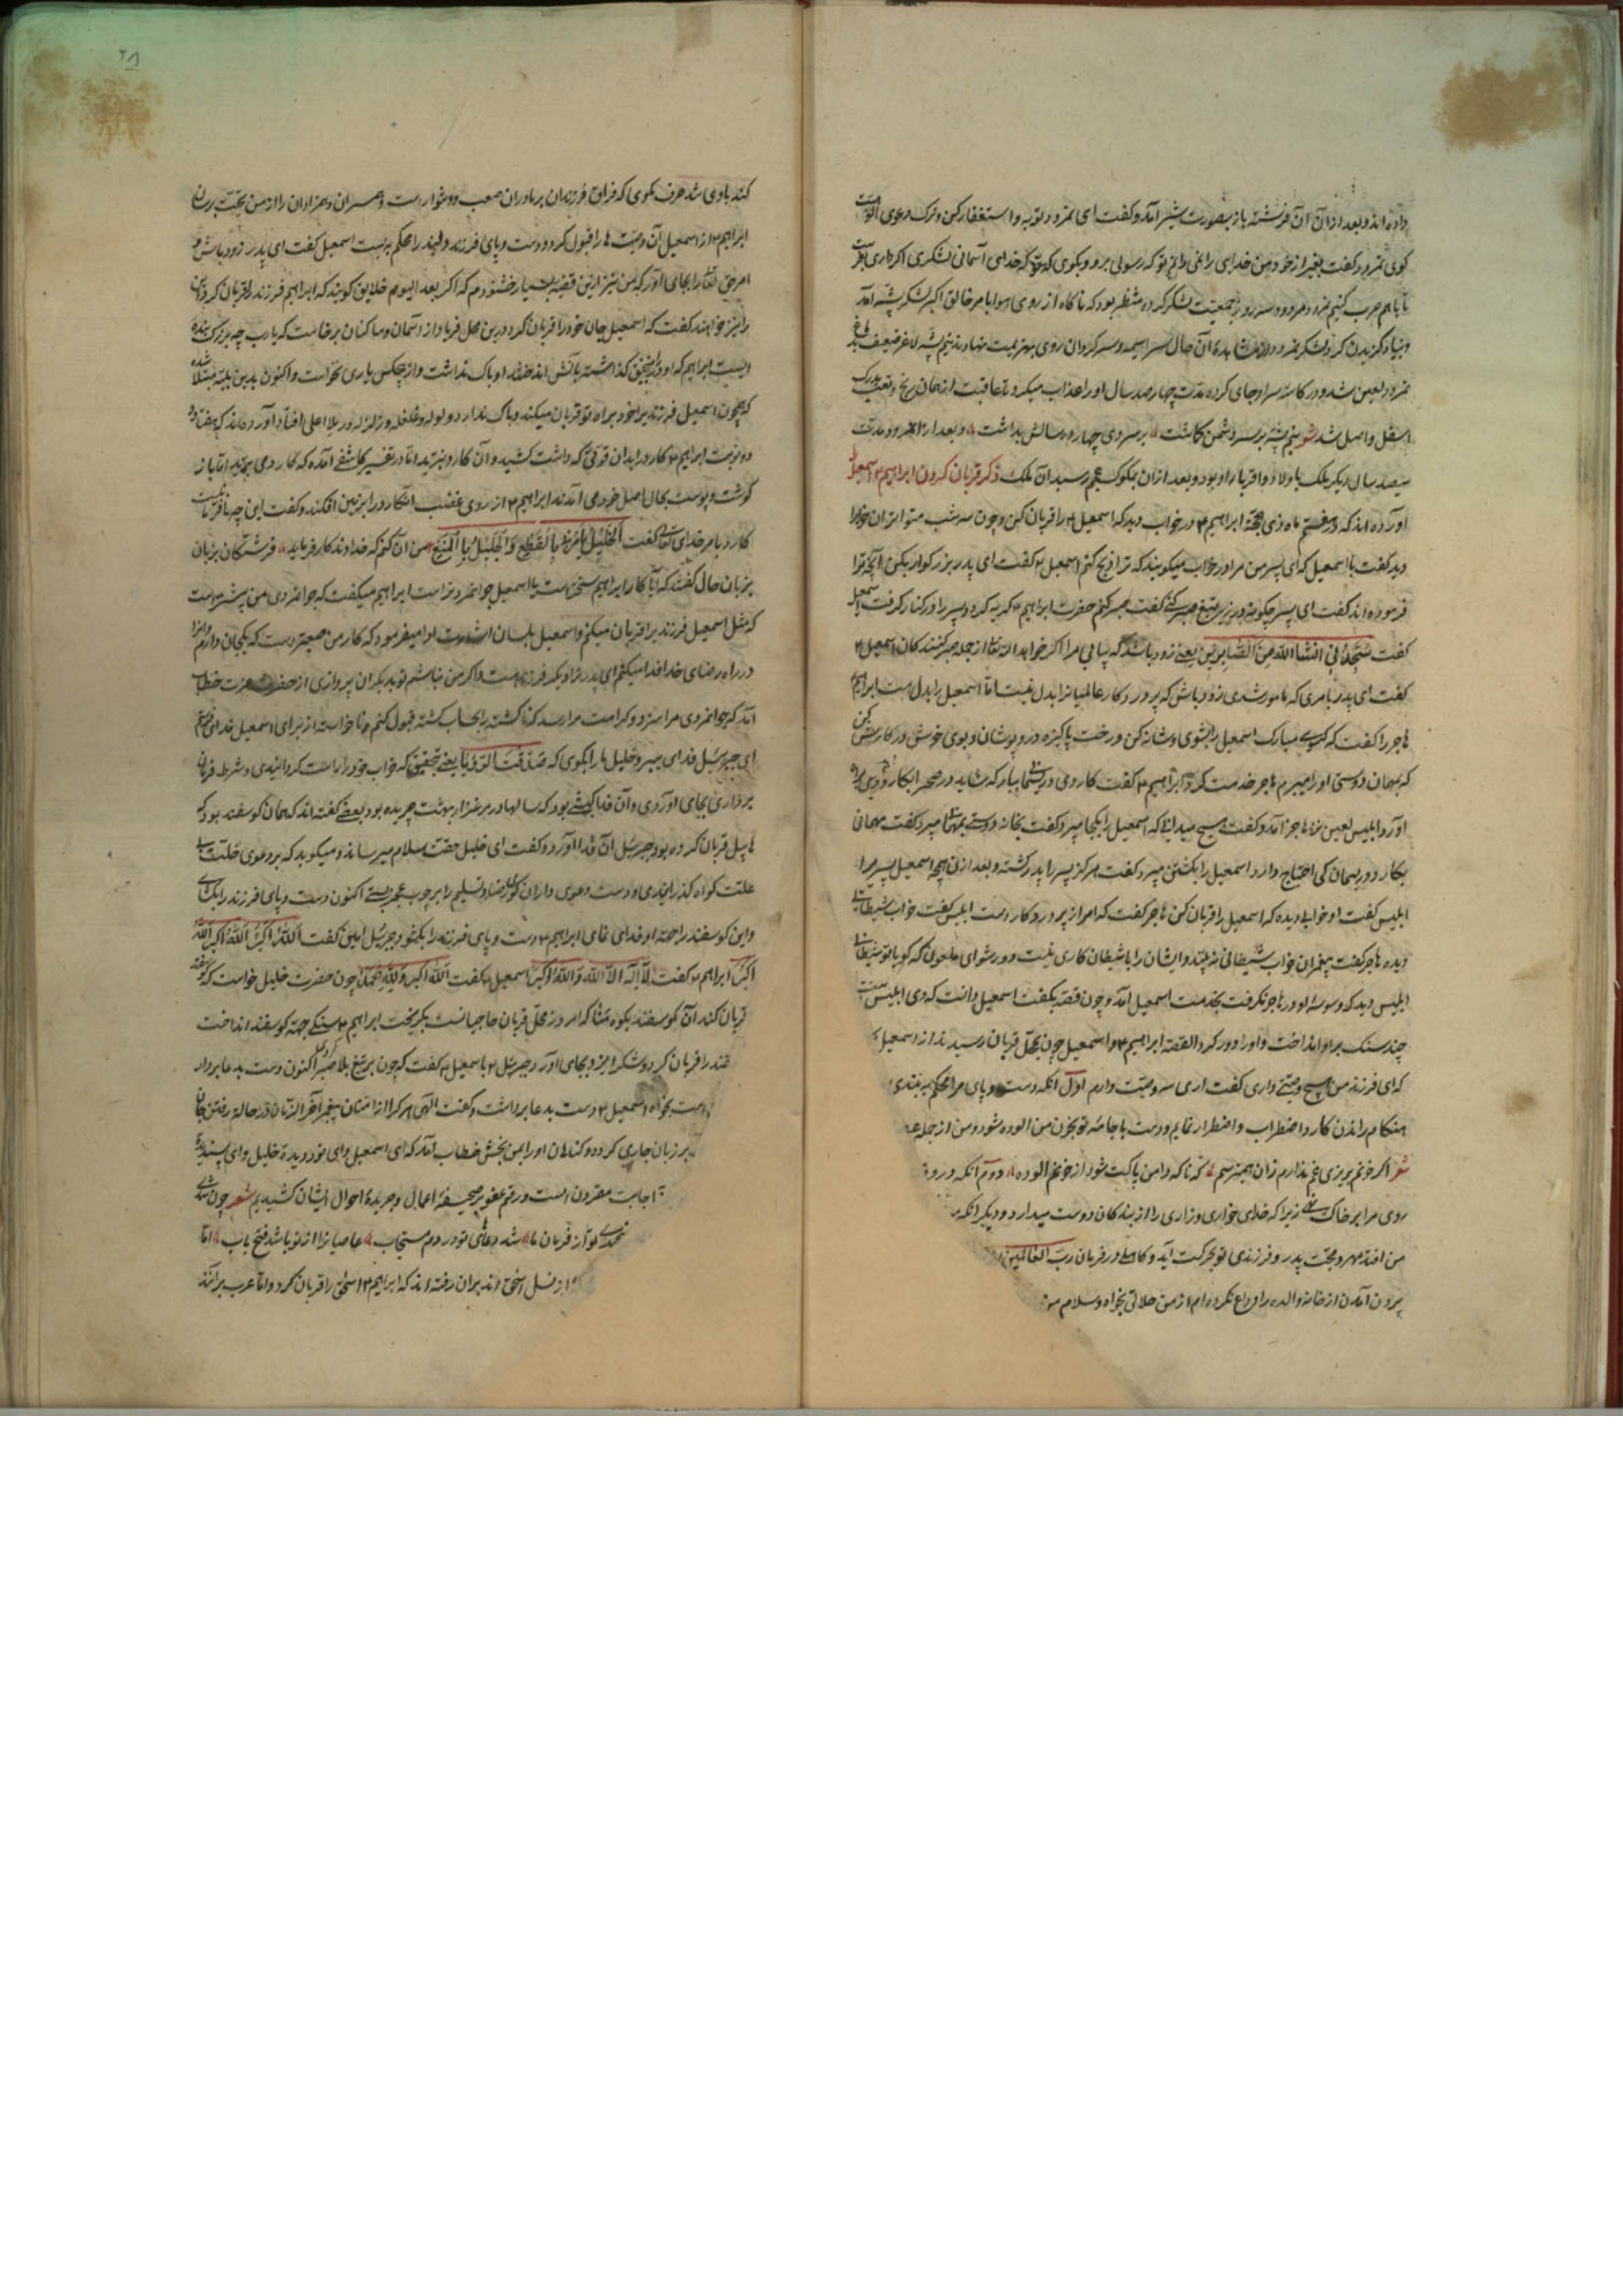 داده اند و بعد از آن آن فرشته باز بصورت بشر آمد و گفت ای نمرود توبه و استغفار کن و ترک دعوی الوهیت
کوی نمرود گفت بغیر از خود من خدایی را نمی دانم تو که رسولی برو و بکوی که خدای آسمانی لشکری اکر داری بفرست
تا با هم حرب کنیم نمرود مردود سه روز جمعیت لشکر کرده منتظر بود که ناکاه از روی هوا بامر خالق اکبر لشکر پشه آمد
و بنیاد کزیدن کرد لشکر نمرود از مشاهده آن حال سراسیمه و سرکردان روی بهزیمت نهادند نیم پشه لاغر ضعیف بدماغ
نمرود لعین شد و در کاسه سر او جای کرده مدت چهار صد سال او را عذاب میکرد تا عاقبت از همان رنج و تعب بدرک
اسفل واصل شد شعر نیم پشه بر سر دشمن کماشت بر سر وی چهار صد سالش بداشت و بعد از نمرود مدت
سیصد سال دیکر ملک باولاد و اقربای او بود و بعد از ان بملوک عجم رسید آن ملک ذکر قربان کردن ابراهیم اسمعیل را
آورده اند که در هفتم ماه ذی حجه ابراهیم در خواب دید که اسمعیل را قربان کن و چون سه شب متواتر آن خواب را
دید گفت با اسمعیل که ای پسر من مرا در خواب میکویند که ترا ذبح کنم اسمعیل گفت ای پدر بزرکوار بکن آنچه ترا
فرموده اند گفت ای پسر چکونه در زیر تیغ صبر کنی گفت صبر کنم حضرت ابراهیم کریه کرد و پسر را در کنار کرفت اسمعیل
گفت ستجدنی انشاالله من الصابرین یعنی زود باشد که بیابی مرا اکر خواهد الله تعالی از جمله صبر کنندکان اسمعیل
گفت ای پدر بامری که مامور شدی زود باش که پروردکار عالمیان را بدل نیست اما اسمعیل را بدل هست ابراهیم
هاجر را گفت که کیسوی مبارک اسمعیل را بشوی و شانه کن و رخت پاکیزه درو پوشان و بوی خوش در کارش کن
که بمهمان دوستی او را میبرم هاجر خدمت کرد ابراهیم گفت کارد و ریسمان بیار که شاید در صحرا بکار
آورد ابلیس لعین نزد هاجر آمد و گفت هیچ میدانی که اسمعیل را بکجا میبرد گفت بخانه دوستی بمهمانی میبرد گفت مهمانی
بکارد و ریسمان کی احتیاج دارد اسمعیل را بکشتن میبرد گفت هرکز پسر را پدر کشته و بعد ازین همچو اسمعیل پسر را
ابلیس گفت او خوابی دیده که اسمعیل را قربان کن هاجر گفت که امر از پروردکار است ابلیس گفت خواب شیطانی
دیده هاجر گفت پیغمبران خواب شیطانی نه بینند و ایشان را با شیطان کاری نیست دور شو ای ملعون که کویا تو شیطانی
ابلیس دید که وسوسه او در هاجر نکرفت بخدمت اسمعیل آمد و چون قصه بگفت اسمعیل دانست که وی ابلیس است
چند سنک بر او انداخت و او را دور کرد القصه ابراهیم و اسمعیل چون بمحل قربان رسیدند از اسمعیل
که ای فرزند من هیچ وصیتی داری گفت اری سه وصیت دارم اول آنکه دست و پای مرا محکم بربندی
هنکام راندن کارد اضطراب و اضطرار نمایم و دست یا جامه تو بخون من الوده شود و من از جمله
شعر اکر خونم بریزی غم ندارم زان همیترسم که ناکه دامن پاکت شود از خونم الوده دوم آنکه در وقت
روی مرا بر خاک نهی زیرا که خدای خواری و زاری را از بندکان دوست میدارد و دیکر آنکه
من افتد مهر و محبت پدر و فرزندی تو بحرکت آید و کاهلی در فرمان رب العالمین
بیرون آمدن از خانه والده را وداع نکرده ام از من حلالی بخواه و سلام
کند با وی بکوی که فراق فرزندان بر مادران صعب و دشوار است و همسران و همزادان را از من تحیت رسان
ابراهیم از اسمعیل آن وصیت ها را قبول کرد و دست و پای فرزند دلبند را محکم ببست اسمعیل گفت ای پدر زود باش و
امر حق تعالی را بجای آور که من نیز ازین قضیه بسیار خشنودم که اکر بعد الیوم خلایق کویند که ابراهیم فرزند را قربان کرد
را نیز خواهند گفت که اسمعیل جان خود را قربان کرد درین محل فریاد از آسمان و ساکنان برخاست که یارب چه بزرک بنده
ایست ابراهیم که او در منجنیق کذاشته بآتش انداختند او باک نداشت و از هیچکس یاری نخواست و اکنون بدین بلیه مبتلا شده
که همچون اسمعیل فرزندیرا خود براه تو قربان میکند و باک ندارد و لوله و غلغله و زلزله در ملا اعلی افتاد آورده اند که هفتاد و
دو نوبت ابراهیم کارد را بدان قوتی که داشت کشید و آن کارد نبرید اما در تفسیر کاشفی آمده که کارد می برید اما باز
کوشت و پوست بحال اصل خود می آمدند ابراهیم از روی غضب آن کارد را بر زمین افکند و گفت این چه نافرمانیست
کارد بامر خدای تعالی گفت الخلیل یامرنی بالقطع و الجلیل بالمنع من آن کنم که خداوندکار فرماید فرشتکان بزبان
بزبان حال گفتند که آیا کار ابراهیم سخت تر است یا اسمعیل جوانمردتر است ابراهیم میگفت که جوانمردی من بیشتر است
که مثل اسمعیل فرزندیرا قربان میکنم و اسمعیل بلسان اشارت ادا میفرمود که کار من صعبتر است که یک جان دارم و آنرا
در راه رضای خدا فدا میکنم ای پدر ترا دیکر فرزند هست و اکر من نباشم تو بدیکران پردازی از حضرت عزت خطاب
آمد که جوانمردی مرا سزد و کرامت مرا رسد که ناکشته را بحساب کشته قبول کنم و ناخواسته از برای اسمعیل فدای فرستم
ای جبرئیل فدای ببر و خلیل ما را بکوی که صدقت الرؤیا یعنی بتحقیق که خواب خود را راست کردانیدی و شرط فرمان
برداری بجای اوردی و آن فدا کبشی بود که سالها در مرغزار بهشت چریده بود بعضی گفته اند که همان کوسفند بود که
هابیل قربان کرده بود جبرئیل آن فدا آورد و گفت ای خلیل حقت سلام میرساند و میکوید که بر دعوی خلت بی
علت کواه کذرانیدی و دست دعوی داران رضا و تسلیم را بر چوب عجز بستی اکنون دست و پای فرزند را بکشای
و این کوسفند را جهة او فدای نمای ابراهیم دست و پای فرزند را بکشود جبرئیل امین گفت الله اکبر الله اکبر الله
اکبر ابراهیم گفت لا اله الا الله والله اکبر اسمعیل گفت الله اکبر ولله الحمد چون حضرت خلیل خواست که کوسفند
قربان کند آن کوسفند بکوه منا که امروز محل قربان حاجیانست بکریخت ابراهیم سنکی جهة کوسفند انداخت
را قربان کرد و شکر ایزد بجای آورد جبرئیل با اسمعیل گفت که چون بر تیغ بلا صبر کردی اکنون دست بدعا بردار
بخواه اسمعیل دست بدعا برداشت و گفت الهی هر کرا از امتان پیغمبر آخر الزمان در حالة رفتن جان
بر زبان جاری کردد کناهان او را بمن بخش خطاب آمد که ای اسمعیل وای نور دیده خلیل وای پسندیده
اجابت مقرون است و رقم عفو بر صحیفه اعمال و جریده احوال ایشان کشیدیم شعر چون شدی
تو از قربان ما شد دعای تو در دم مستجاب عاصیانرا از تو باشد فتح باب اما
از نسل اسحق اند بران رفته اند که ابراهیم اسحق را قربان کرد و اما عرب برآنند